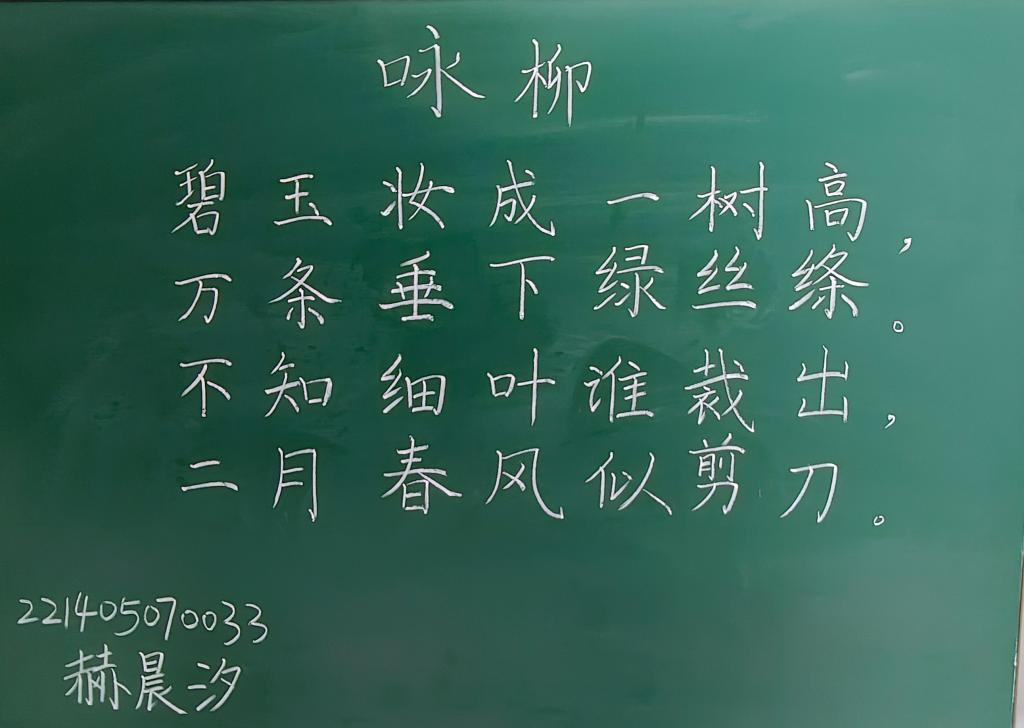 咏柳
碧玉妆成一树高，
万条垂下绿丝绦。
不知细叶谁裁出，
二月春风似剪刀。
221405070033
赫晨汐